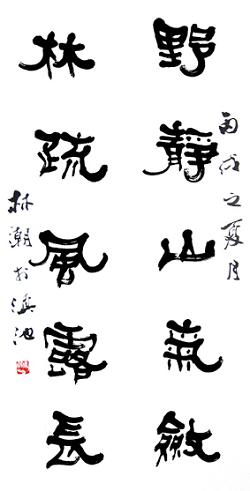 丙戌之夏月
野靜山氣斂
林疏風露長
林潮於滇池